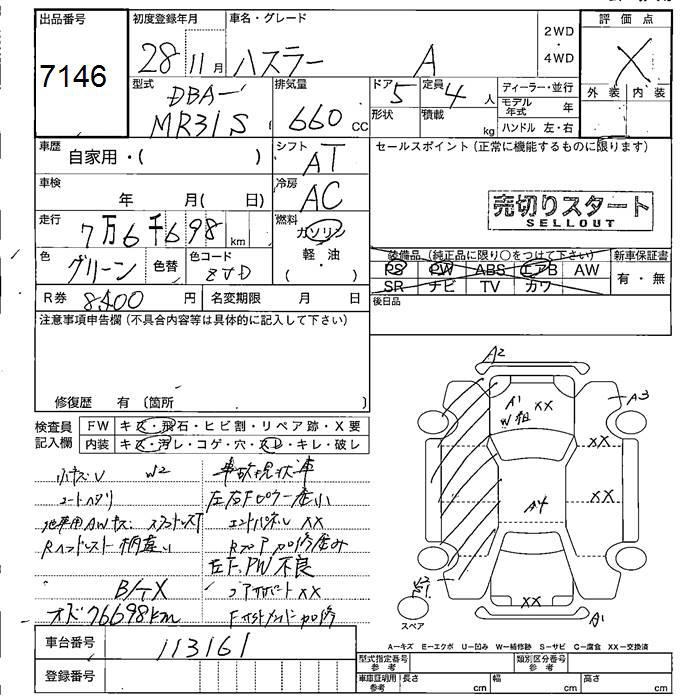 出品番号
7146
初度登録年月
28 11月
車名・グレード
ハスラー A
2WD
・
4WD
評価点
X
外装 内装
型式
DBA-
MR31S
排気量
660 CC
ドア
5
定員
4 人
形状
積載
kg
ディーラー・並行
モデル年式 年
ハンドル 左・右
車歴
自家用・( )
シフト
AT
セールスポイント(正常に機能するものに限ります)
売切りスタート
SELLOUT
車検
年 月( 日)
冷房
AC
走行
7万6千698 km
燃料
ガソリン
軽・油
( )
色
グリーン
色替
色コード
ZVD
装備品(純正品に限り○をつけて下さい)
PS PW ABS エアB AW
SR ナビ TV カワ
新車保証書
有・無
R券 8400 円
名変期限 月 日
後日品
注意事項申告欄(不具合内容等は具体的に記入して下さい)
修復歴 有(箇所 )
検査員
記入欄
FW キズ・飛石・ヒビ割・リペア跡・X要
内装 キズ・汚レ・コゲ・穴・スレ・キレ・破レ
W2
事故現状車
コートヘタリ
エンドパネル XX
左F.PW不良
B/T X
オド76698km
A2
A1
XX
A3
XX
XX
A4
XX
A1
スペア
A-キズ E-エクボ U-凹み W-補修跡 S-サビ C-腐食 XX-交換済
車台番号
113161
登録番号
型式指定番号
参考
類別区分番号
参考
車庫証明用
参考
長さ cm
幅 cm
高さ cm